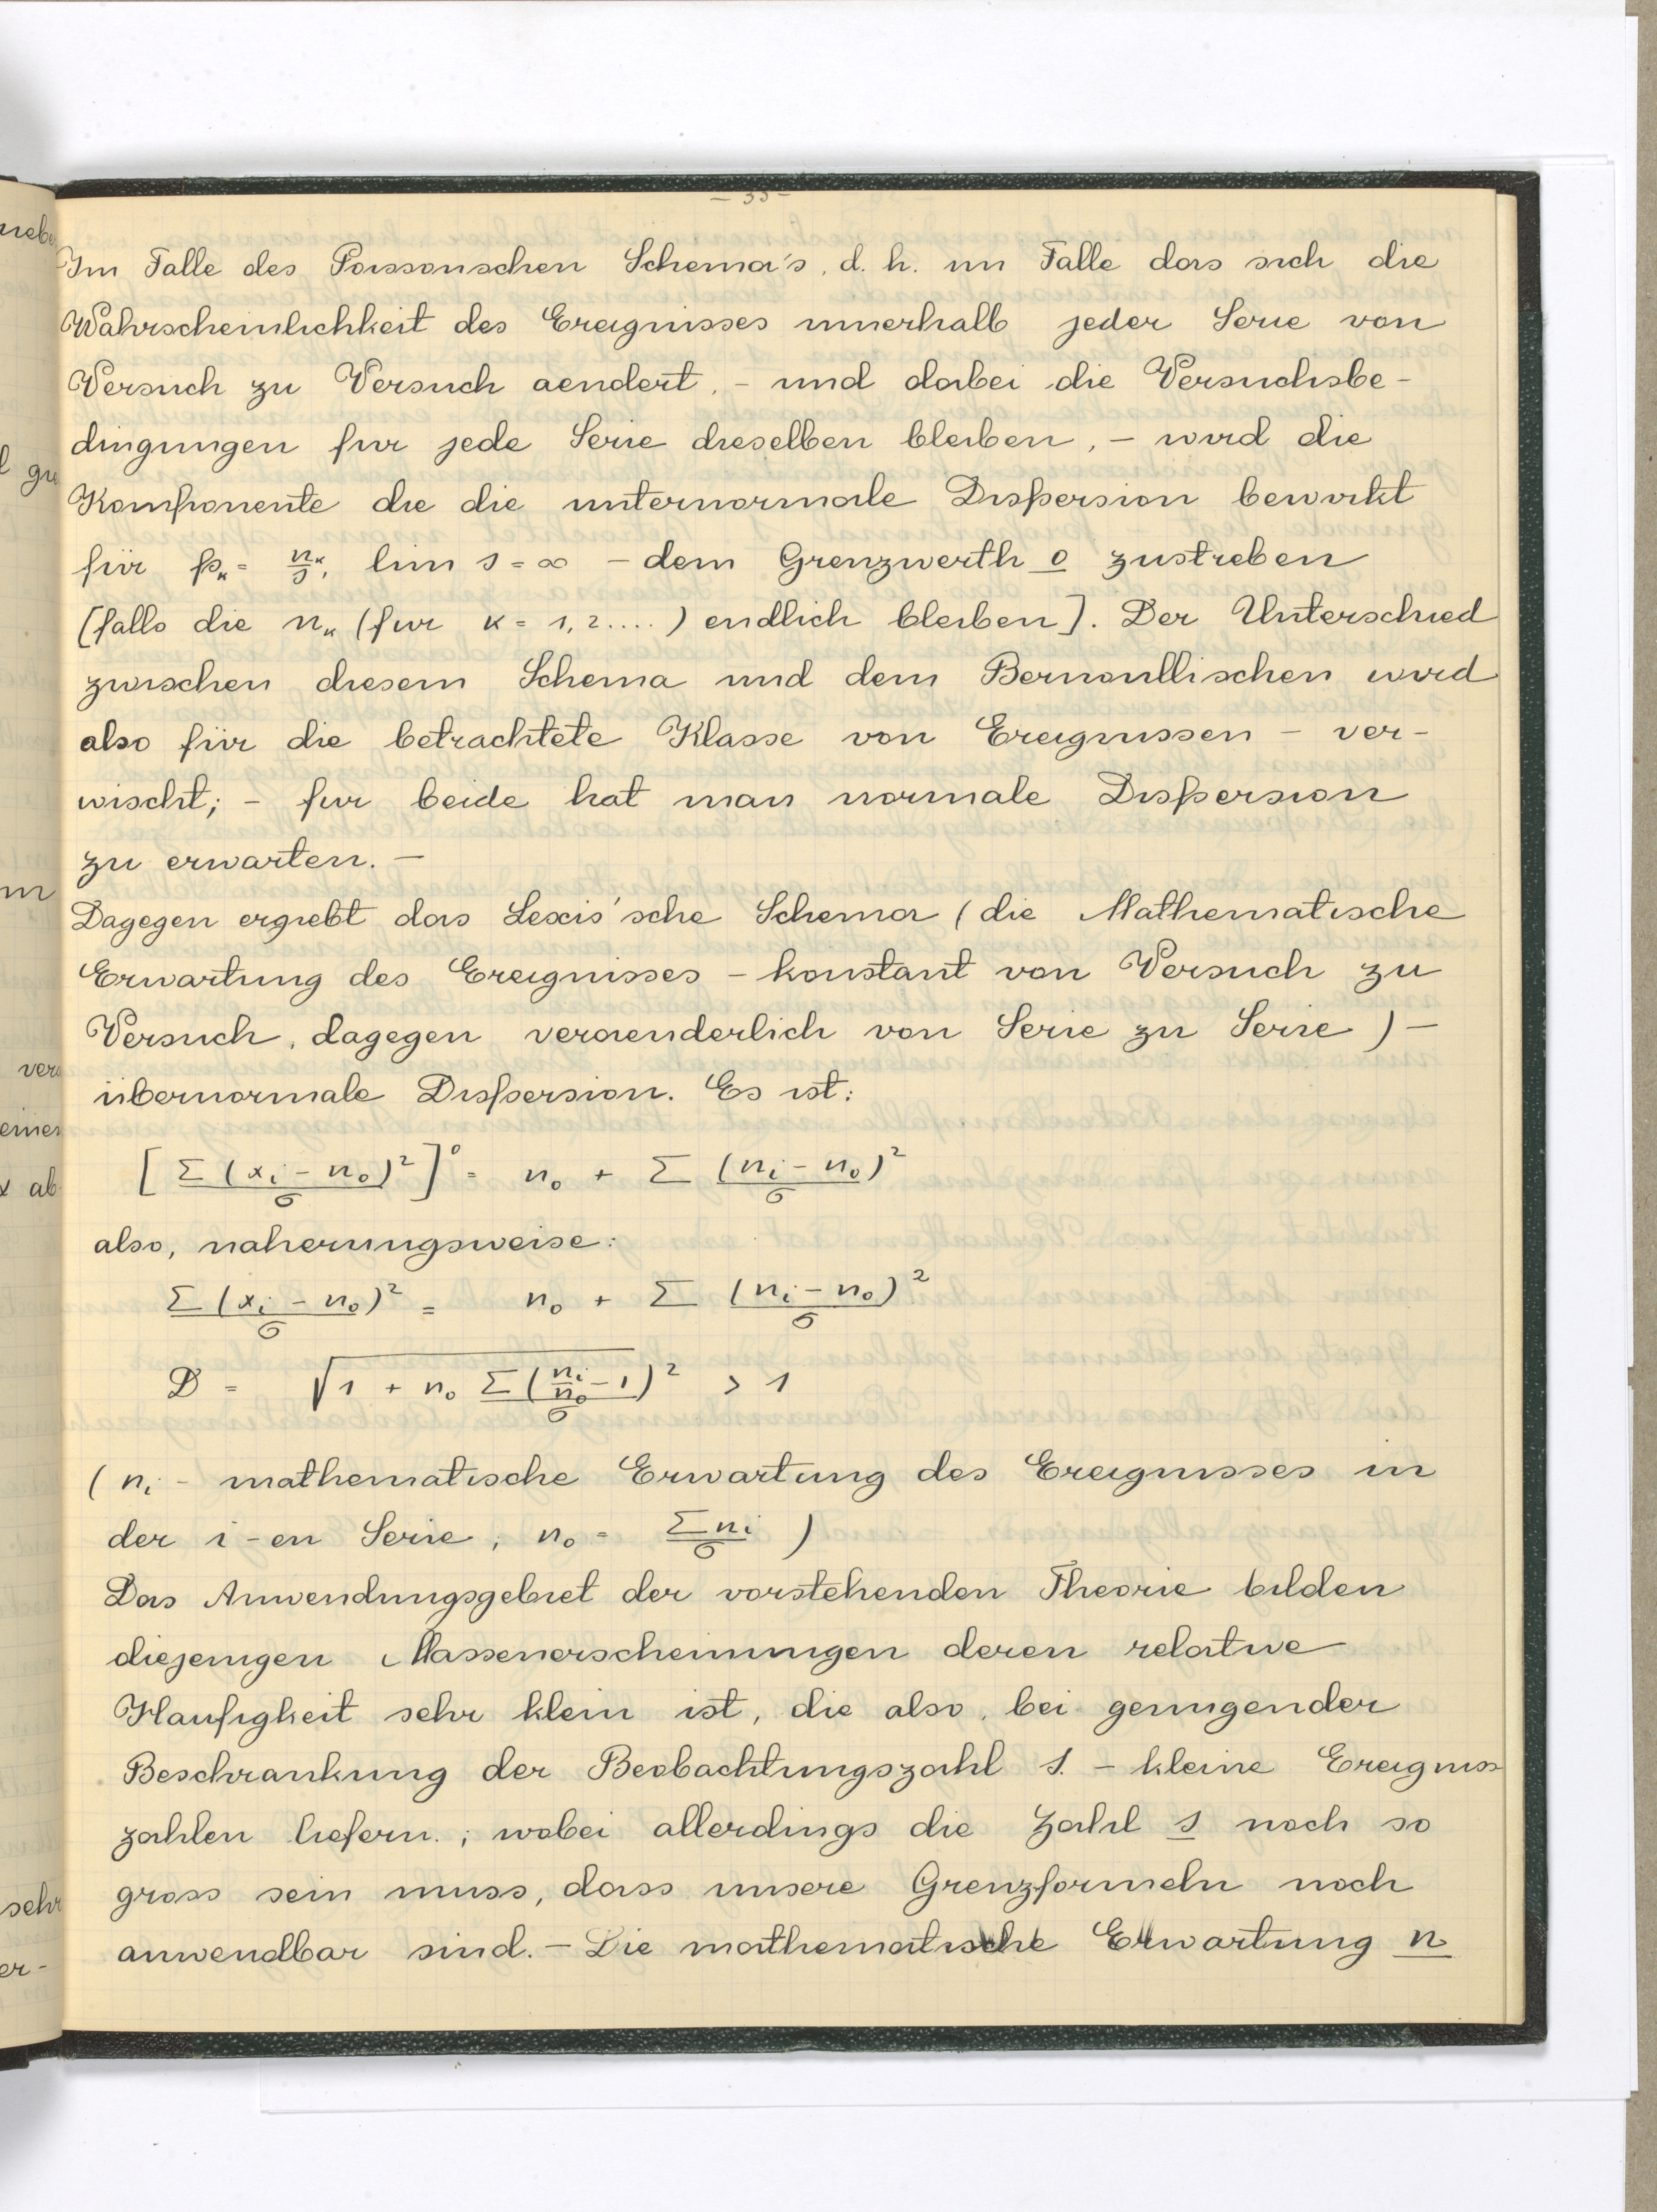 - 33 -
Im Falle des Poissonschen Schema's, d. h. im Falle das sich die
Wahrscheinlichkeit des Ereignisses innerhalb jeder Serie von
Versuch zu Versuch aendert, - und dabei die Versuchsbe-
dingungen fur jede Serie dieselben bleiben, - wird die
Komponente die die unternormale Dispersion bewirkt
für pₖ = nₖ/s, lim s = ∞ - dem Grenzwerth 0 zustreben
[falls die nₖ (fur k = 1, 2....) endlich bleiben]. Der Unterschied
zwischen diesem Schema und dem Bernoullischen wird
also für die betrachtete Klasse von Ereignissen - ver-
wischt; - fur beide hat man normale Dispersion
zu erwarten. -
Dagegen ergiebt das Lexis'sche Schema (die Mathematische
Erwartung des Ereignisses - konstant von Versuch zu
Versuch, dagegen veraenderlich von Serie zu Serie) -
übernormale Dispersion. Es ist:
[Σ(xᵢ - n₀)²/σ]⁰ = n₀ + Σ (nᵢ - n₀)²/σ
also, naherungsweise:
Σ(xᵢ - n₀)²/σ = n₀ + Σ (nᵢ - n₀)²/σ
D = √(1 + n₀ Σ(nᵢ/n₀ - 1)²/σ) > 1
(nᵢ - mathematische Erwartung des Ereignisses in
der i-en Serie; n₀ = Σnᵢ/σ)
Das Anwendungsgebiet der vorstehenden Theorie bilden
diejenigen Massenerscheinungen deren relative
Haufigkeit sehr klein ist, die also, bei genugender
Beschrankung der Beobachtungszahl s. - kleine Ereigniss
zahlen liefern.; wobei allerdings die Zahl s noch so
gross sein muss, dass unsere Grenzformeln noch
anwendbar sind. - Die mathematische Erwartung n